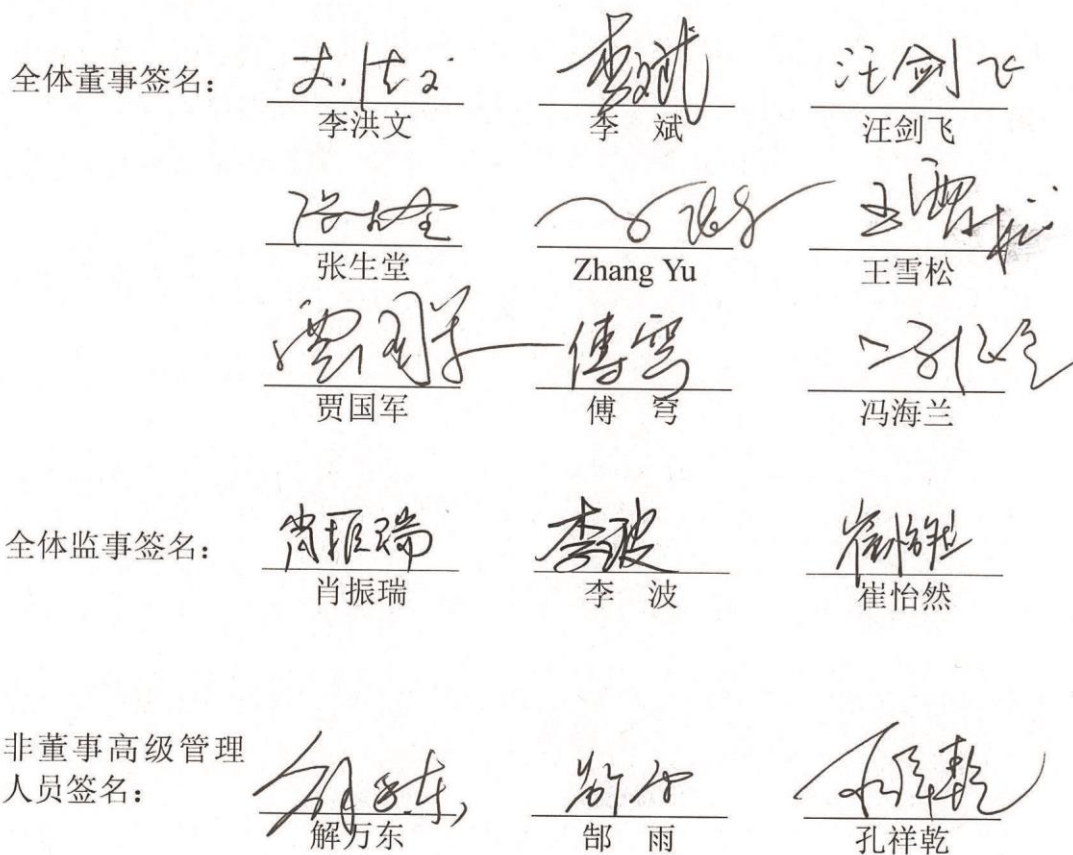 全体董事签名：
李洪文 李 斌 汪剑飞
张生堂 Zhang Yu 王雪松
贾国军 傅 穹 冯海兰
全体监事签名：
肖振瑞 李 波 崔怡然
非董事高级管理
人员签名：
解万东 郜 雨 孔祥乾